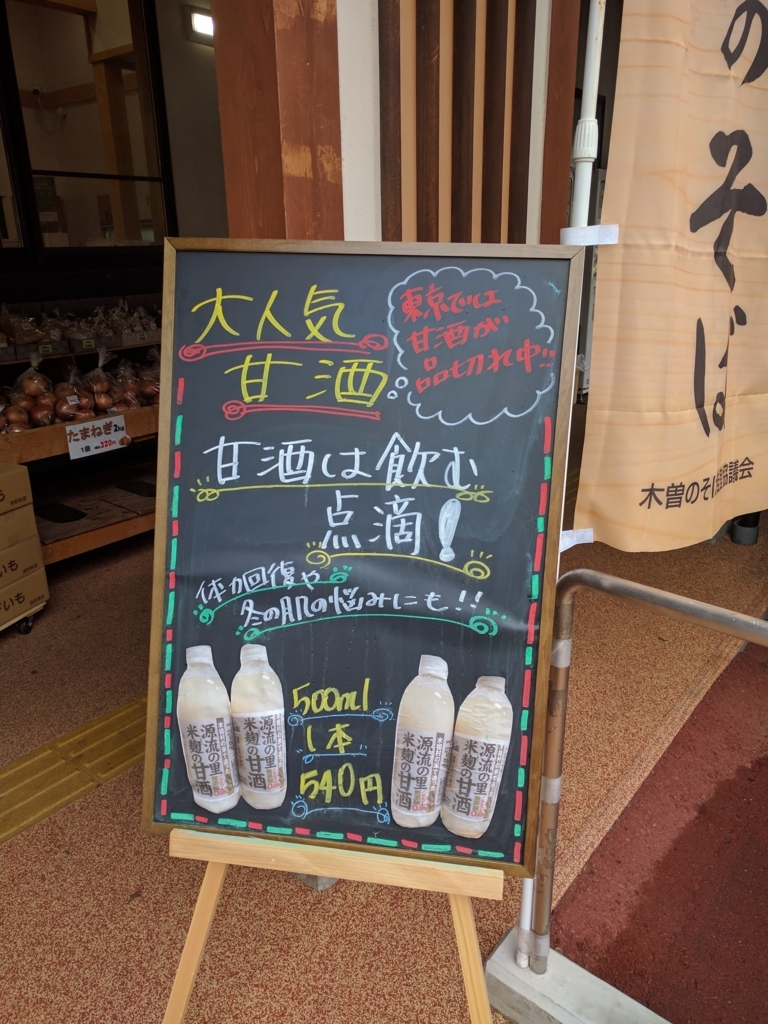 大人気
甘酒
東京では
甘酒が
品切れ中!!
甘酒は飲む
点滴!
体力回復や
冬の肌の悩みにも!!
500ml
1本
540円
源流の里
米麹の甘酒
源流の里
米麹の甘酒
源流の里
米麹の甘酒
源流の里
米麹の甘酒
のそば
木曽のそば
協議会
たまねぎ2kg
1袋
320円
いも